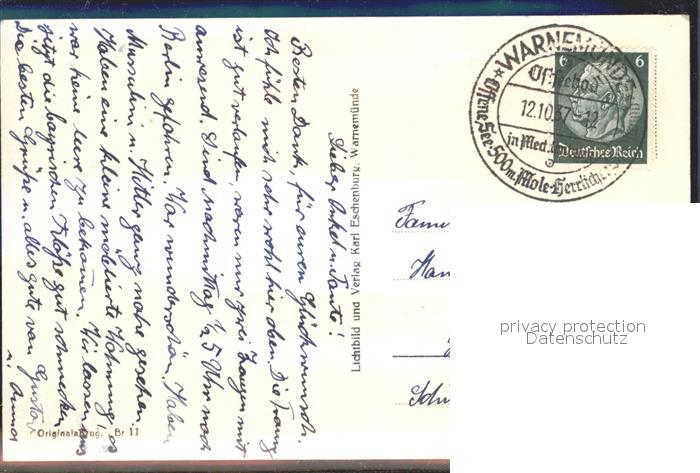 Lieber Onkel u. Tante!
Besten Dank, für euren Glückwunsch.
Ich fühle mich sehr wohl hier oben. Die Trauung
ist gut verlaufen, waren nur zwei Zeugen mit
anwesend. Sind nachmittag ½ 5 Uhr nach
Berlin gefahren. War wunderschön. Haben
Mussolini u. Hitler ganz nahe gesehen.
Haben eine kleine möblierte Wohnung, es
war keine leere zu bekommen. Wir lassen uns
jetzt die bayrischen Klöße gut schmecken
Die besten Grüße u. alles gute von Gustav
u. Anna
Originalabzug. Br 11
Lichtbild und Verlag Karl Eschenburg, Warnemünde
WARNEMÜNDE
Ostseebad
12.10.37 - 12
in Meckl.
Offene See-500m. Mole-Herrlicher
6 6
Deutsches Reich
Fami
privacy protection
Datenschutz